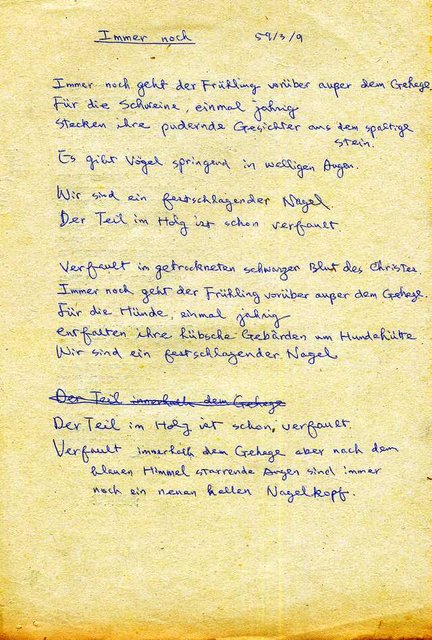 Immer noch 59/3/9
Immer noch geht der Frühling vorüber außer dem Gehege.
Für die Schweine, einmal jahrig
stecken ihre pudernde Gesichter aus dem spaltige
stein.
Es gibt Vögel springend in welligen Augen.
Wir sind ein festschlagender Nagel.
Der Teil im Holz ist schon verfault
Verfault in getrockneten schwarzen Blut des Christen
Immer noch geht der Frühling vorüber außer dem Gehege.
Für die Hünde, einmal jahrig
entfalten ihre hübsche Gebärden um Hundehütte
Wir sind ein festschlagender Nagel
Der Teil innerhalb dem Gehege
Der Teil im Holz ist schon, verfault.
Verfault innerhalb dem Gehege aber nach dem
blauen Himmel starrende Augen sind immer
noch ein neuen hellen Nagelkopf.